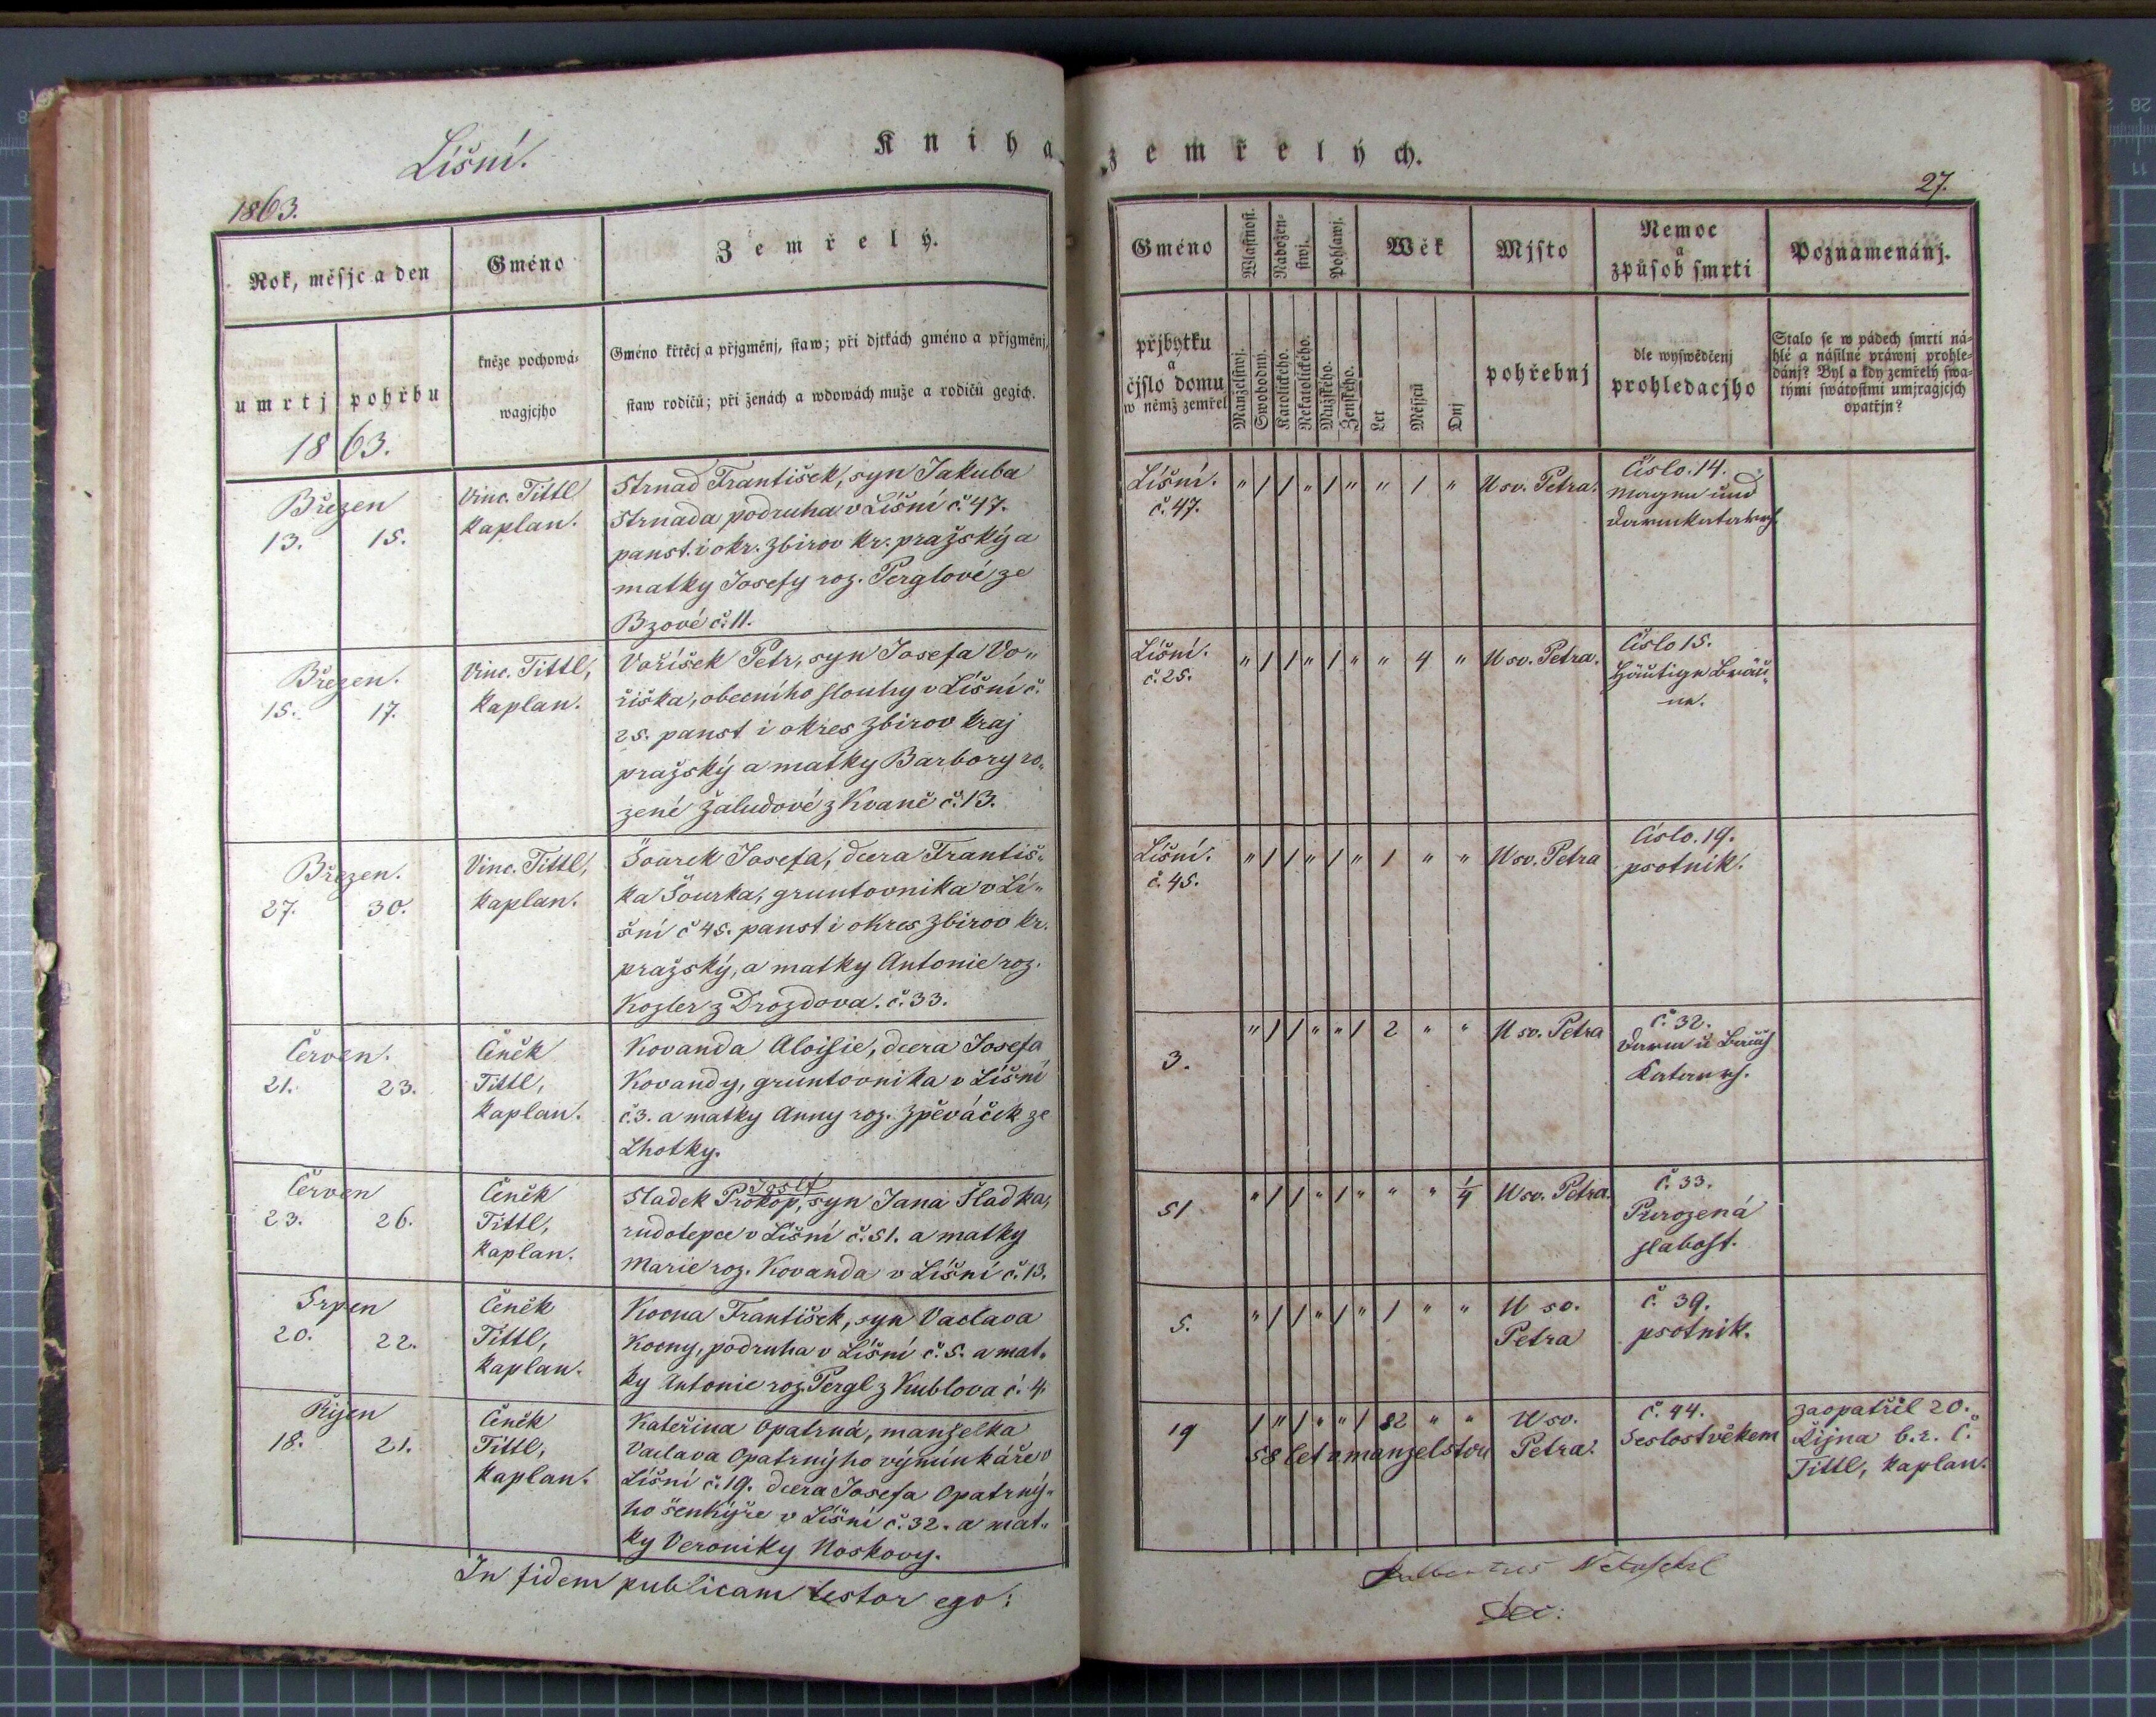 Líšní.
Kniha
1863.
Rok, měsjc a den
Gméno
Zemřelý.
umrtj
pohřbu
kněze pochowá-
wagjcjho
Gméno křtěcj a přjgměnj, staw; při djtkách gméno a přjgměnj,
staw rodičů; při ženách a wdowách muže a rodičů gegich.
1863.
Březen
13. 15.
Vinc. Tittl
kaplan.
Strnad František, syn Jakuba
Strnada podruha v Líšní č. 47.
panst. i okr. Zbirov kr. pražský a
matky Josefy roz. Perglové ze
Bzové č. 11.
Březen.
15. 17.
Vinc. Tittl,
kaplan.
Voříšek Petr, syn Josefa Vo„
říška, obecního slouhy v Líšní č.
25. panst i okres Zbirov kraj
pražský a matky Barbory ro„
zené Žaludové z Kvaně č. 13.
Březen.
27. 30.
Vinc. Tittl,
kaplan.
Šourek Josefa, dcera Františ„
ka Šourka, gruntovnika v Lí„
šní č 45. panst i okres Zbirov kr.
pražský, a matky Antonie roz.
Kozler z Drozdova. č. 33.
Červen.
21. 23.
Čeněk
Tittl,
kaplan.
Kovanda Aloisie, dcera Josefa
Kovandy, gruntovnika v Líšní
č. 3. a matky Anny roz. Zpěváček ze
Lhotky.
Červen
23. 26.
Čeněk
Tittl,
kaplan.
Josef
Sladek Prokop, syn Jana Sladka,
rudotepce v Líšní č. 51. a matky
Marie roz. Kovanda v Líšní č. 13.
Srpen
20. 22.
Čeněk
Tittl,
kaplan.
Kocna František, syn Vaclava
Kocny, podruha v Líšní č. 5. a mat„
ky Antonie roz. Pergl z Kublova č. 4.
Říjen
18. 21.
Čeněk
Tittl,
kaplan.
Kateřina Opatrná, manželka
Vaclava Opatrnýho výmínkáře v
Líšní č. 19. dcera Josefa Opatrný„
ho šenkýře v Líšní č. 32. a mat„
ky Veroniky Noskovy.
In fidem publicam testor ego:
zemřelých.
27.
Gméno
přjbytku
a
čjslo domu
w němž zemřel
Wlastnost.
Nábožen-
stwj.
Pohlawj.
Wěk
Mjsto
pohřebnj
Nemoc
a
způsob smrti
dle wyswědčenj
prohledacjho
Poznamenánj.
Stalo se w pádech smrti ná-
hlé a násilné práwnj prohle-
dánj? Byl a kdy zemřelý swa-
tými swátostmi umjragjcjch
opatřjn?
Manželstwj.
Swobodnw.
Katolického.
Nekatolického.
Mužského.
Ženského.
Let
Měsjců
Dnj
Líšní.
č. 47.
„ 1 1 „ 1 „ „ 1 „
U sv. Petra.
Číslo. 14.
Magen und
Darmkatarrh.
Líšní.
č. 25.
„ 1 1 „ 1 „ „ 4 „
U sv. Petra.
Číslo 15.
Häutige Bräu„
ne.
Líšní.
č. 45.
„ 1 1 „ 1 „ 1 „ „
U sv. Petra
Číslo. 19.
psotnik.
3.
„ 1 1 „ „ 1 2 „ „
U sv. Petra
č. 32.
Darm u Bauch
Katarrh.
51
„ 1 1 „ 1 „ „ „ 1/4
U sv. Petra.
č. 33.
Přirozená
slabost.
5.
„ 1 1 „ 1 „ 1 „ „
U sv.
Petra
č. 39.
psotnik.
19
1 „ 1 „ „ 1 82 „ „
58 let v manželstvu
U sv.
Petra.
č. 44.
Sešlost věkem
Zaopatřil 20.
Října b. r. Č.
Tittl, kaplan.